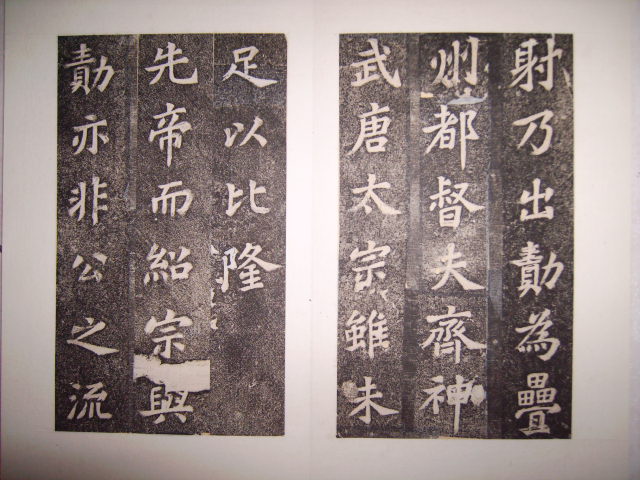 射乃出勣為疊
州都督夫齊神
武唐太宗雖未
足以比隆
先帝而紹宗與
勣亦非公之流